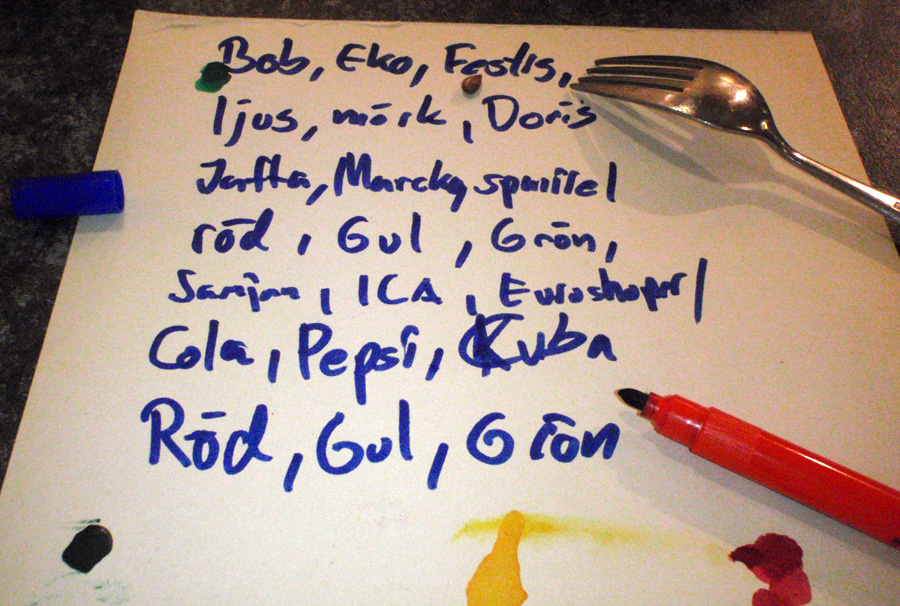 Bob, Eko, Festis,
ljus, mörk, Doris
Jaffa,
röd, Gul, Grön,
ICA, Euroshoper/
Cola, Pepsi, Kuba
Röd, Gul, Grön